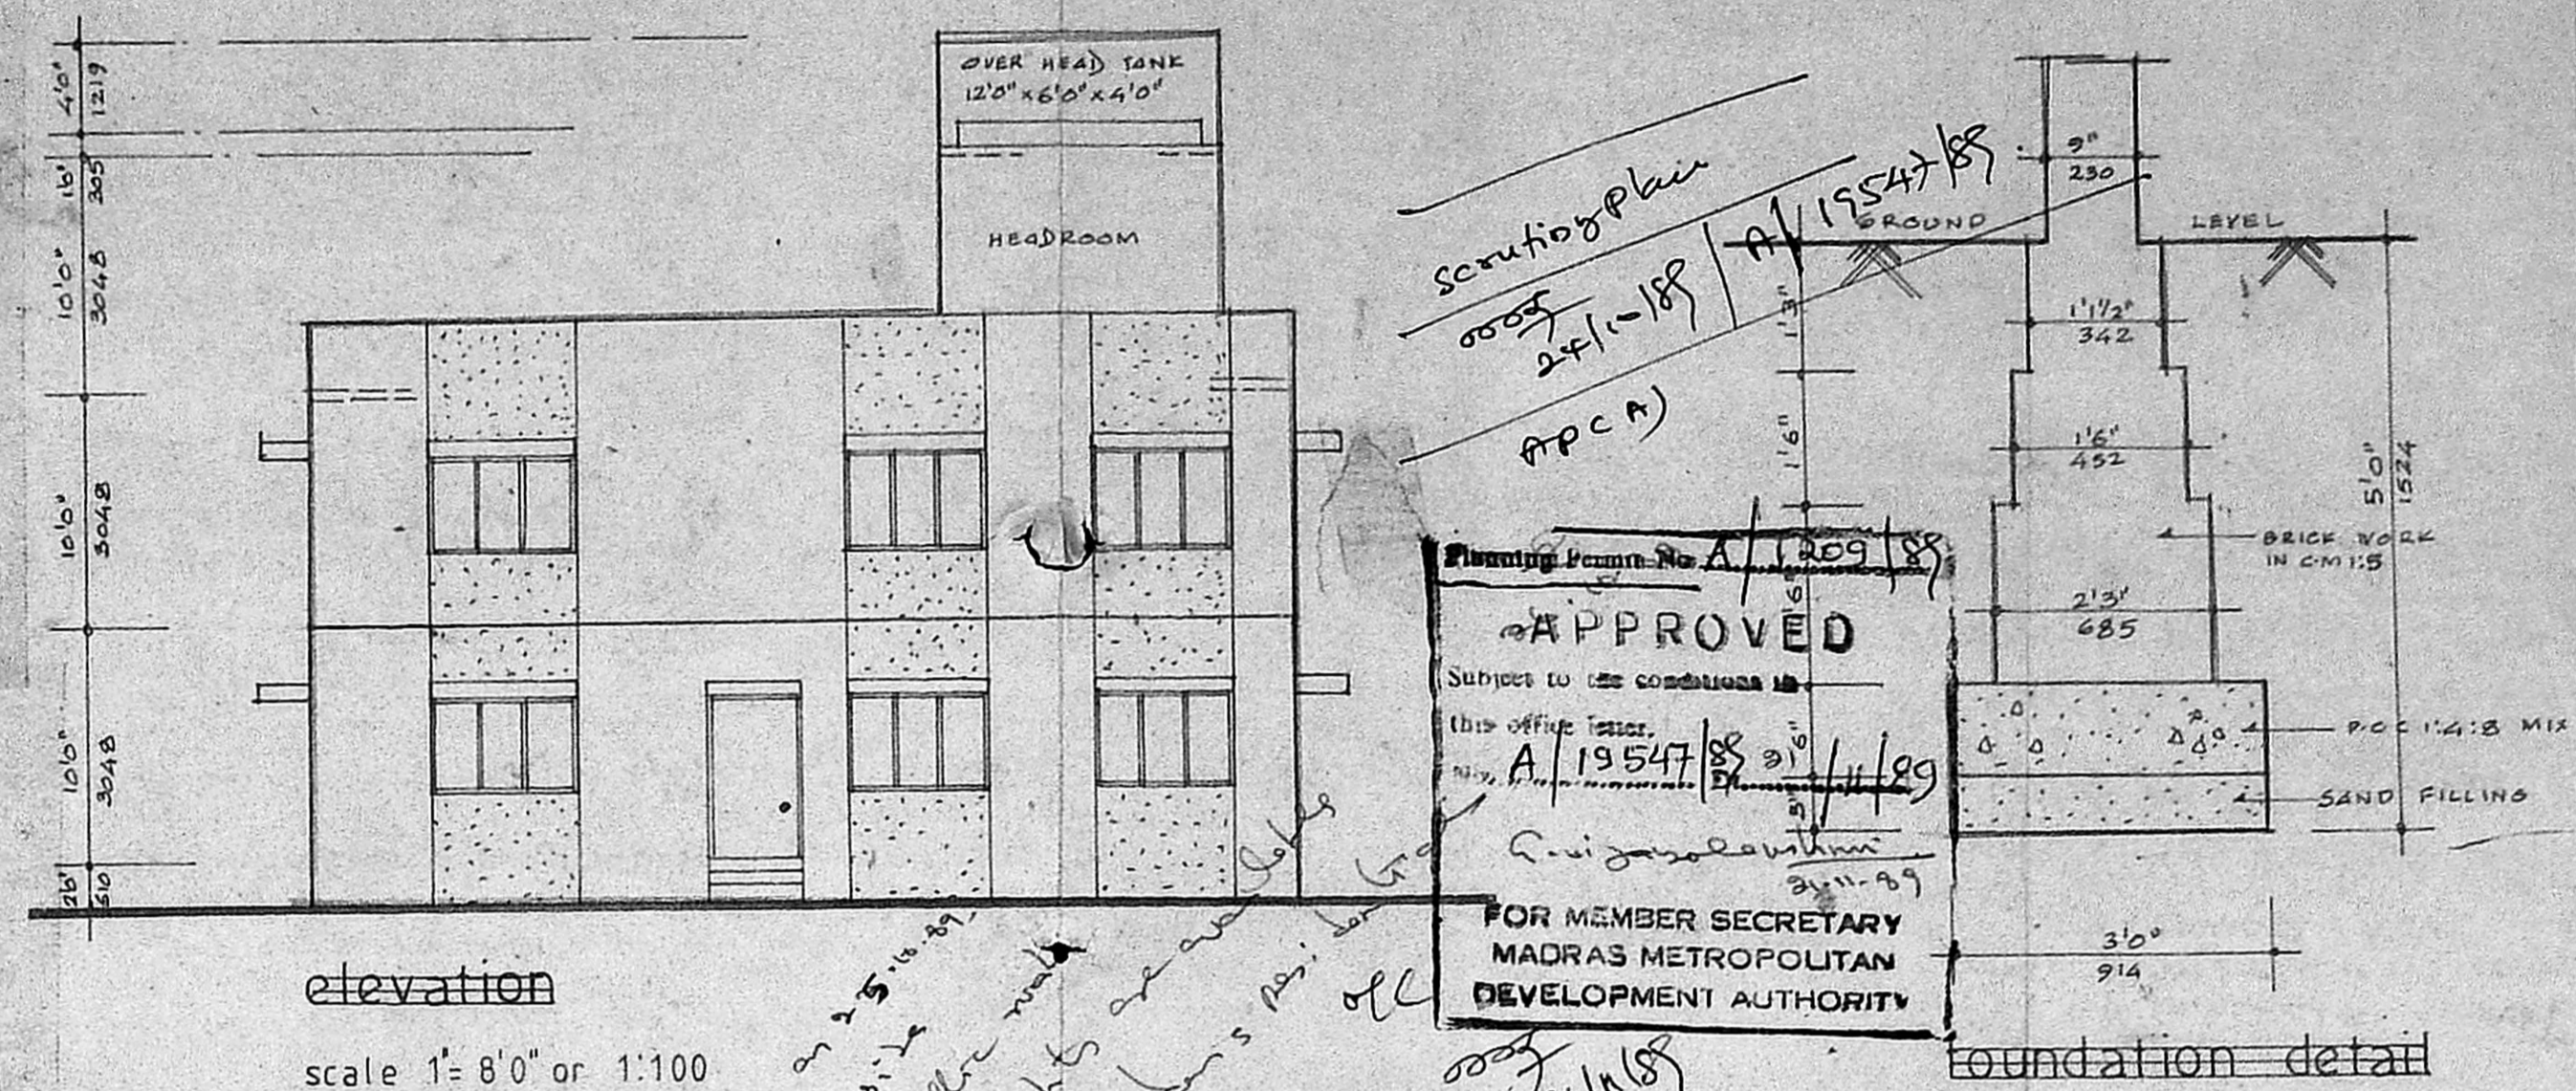 4'0"
1219
1'0"
305
10'0"
3048
10'0"
3048
10'0"
3048
510
OVER HEAD TANK
12'0" x 6'0" x 4'0"
HEADROOM
elevation
scale 1"= 8'0" or 1:100
scrutiny plan
A/19547/89
APCA)
Planning Permit No A/1209/89
APPROVED
Subject to the conditions in
this office letter.
No. A/19547/89 D /11/89
21-11-89
FOR MEMBER SECRETARY
MADRAS METROPOLITAN
DEVELOPMENT AUTHORITY
9"
230
GROUND LEVEL
1'3"
1'1½"
342
1'6"
1'6"
452
5'0"
1524
BRICK WORK
IN C.M 1:5
2'3"
685
P.C.C 1:4:8 MIX
SAND FILLING
3'0"
914
foundation detail